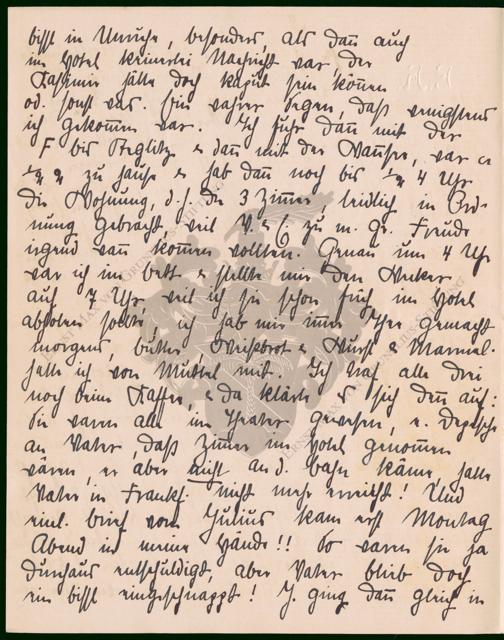 bissl in Unruhe, besonders, als dann auch
im Hotel keinerlei Nachricht war, der
Kasimir hätte doch kaput sein können
od. sonst was. Ein wahrer Segen, daß wenigstens
ich gekommen war. Ich fuhr dann mit der
F bis Steglitz & dann mit der Wannsee, war c
zu Hause & hab dann noch bis 1/2 4 Uhr
die Wohnung, d. h. die 3 Zimmer leidlich in Ord-
nung gebracht, weil V. & C. zu m. gr. Freude
irgend wann kommen wollten. Genau um 4 Uhr
war ich im Bett & stellte mir den Wecker
auf 7 Uhr, weil ich sie schon früh im Hotel
abholen sollte, ich hab mir immer Thee gemacht
morgens, Butter, Weißbrot & Wurst & Marmel.
hatte ich von Muttel mit. Ich traf alle drei
noch beim Kaffee, & da klärte sich denn auf:
sie waren alle im Theater gewesen, e. Depesche
an Vater, daß Zimmer im Hotel genommen
wären, er aber nicht an d. Bahn käme, hatte
Vater in Frankf. nicht mehr erreicht! Und
Brief von Julius kam erst Montag
Abend in meine Hände!! So waren sie ja
durchaus entschuldigt, aber Vater blieb doch
ein bissl eingeschnappt! J. ging dann gleich in